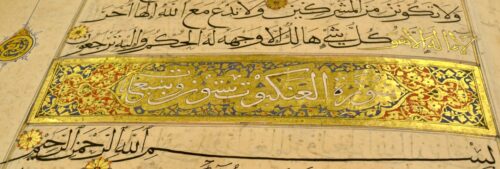 ولا تكونن من المشركين ولا تدع مع الله إلها آخر
لا إله إلا هو كل شيء هالك إلا وجهه له الحكم وإليه ترجعون
سورة العنكبوت ستون وتسع
بسم الله الرحمن الرحيم